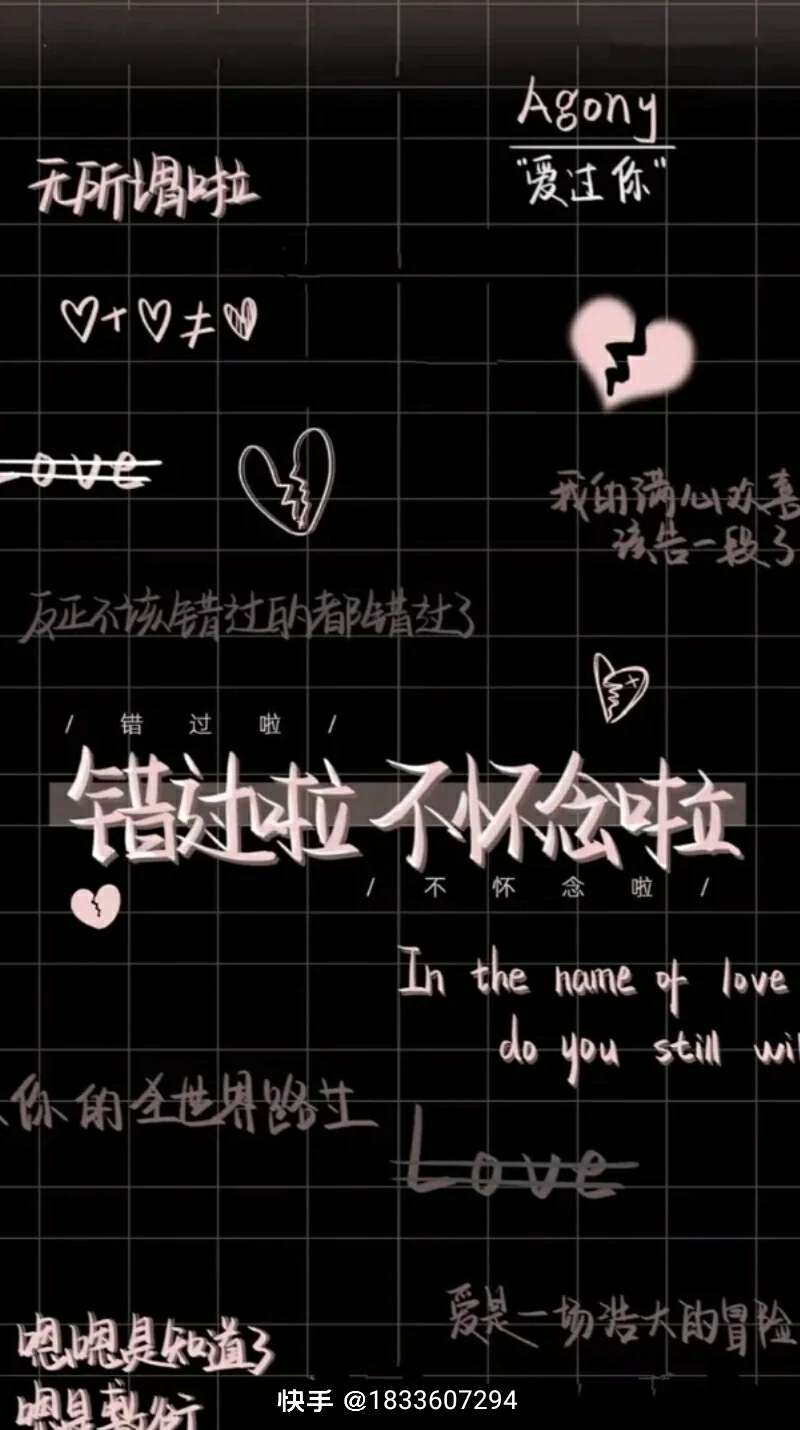 Agony
无所谓啦
"爱过你"
Love
我的满心欢喜
该告一段了
反正不该错过的都错过了
/ 错过啦 /
错过啦 不怀念啦
/ 不怀念啦 /
In the name of love
do you still wil
你的全世界路过
Love
爱是一场浩大的冒险
嗯嗯是知道了
嗯是敷衍
快手 @1833607294